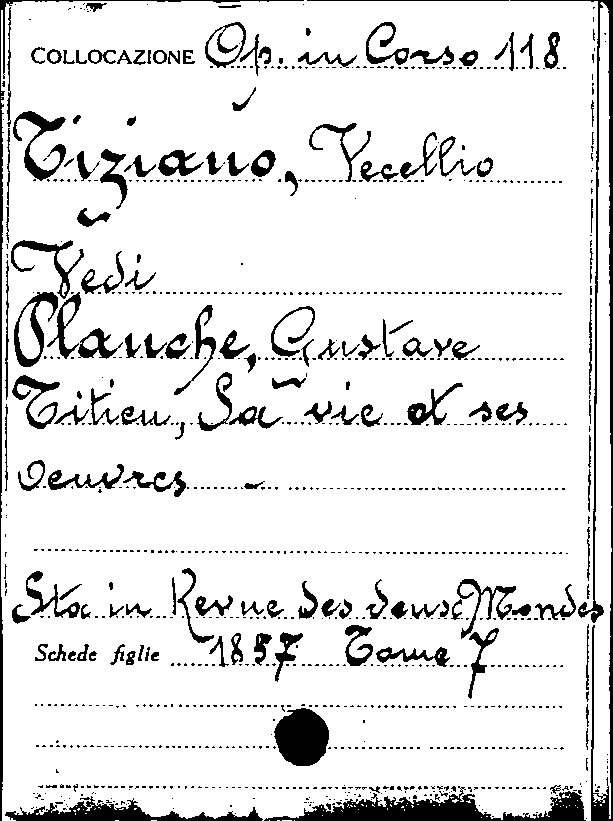 COLLOCAZIONE Op. in Corso 118
Tiziano, Vecellio
Vedi
Planche, Gustave
Titien, Sa vie et ses
oeuvres -
Sta in Revue des deux Mondes
Schede figlie 1857 Tome 7